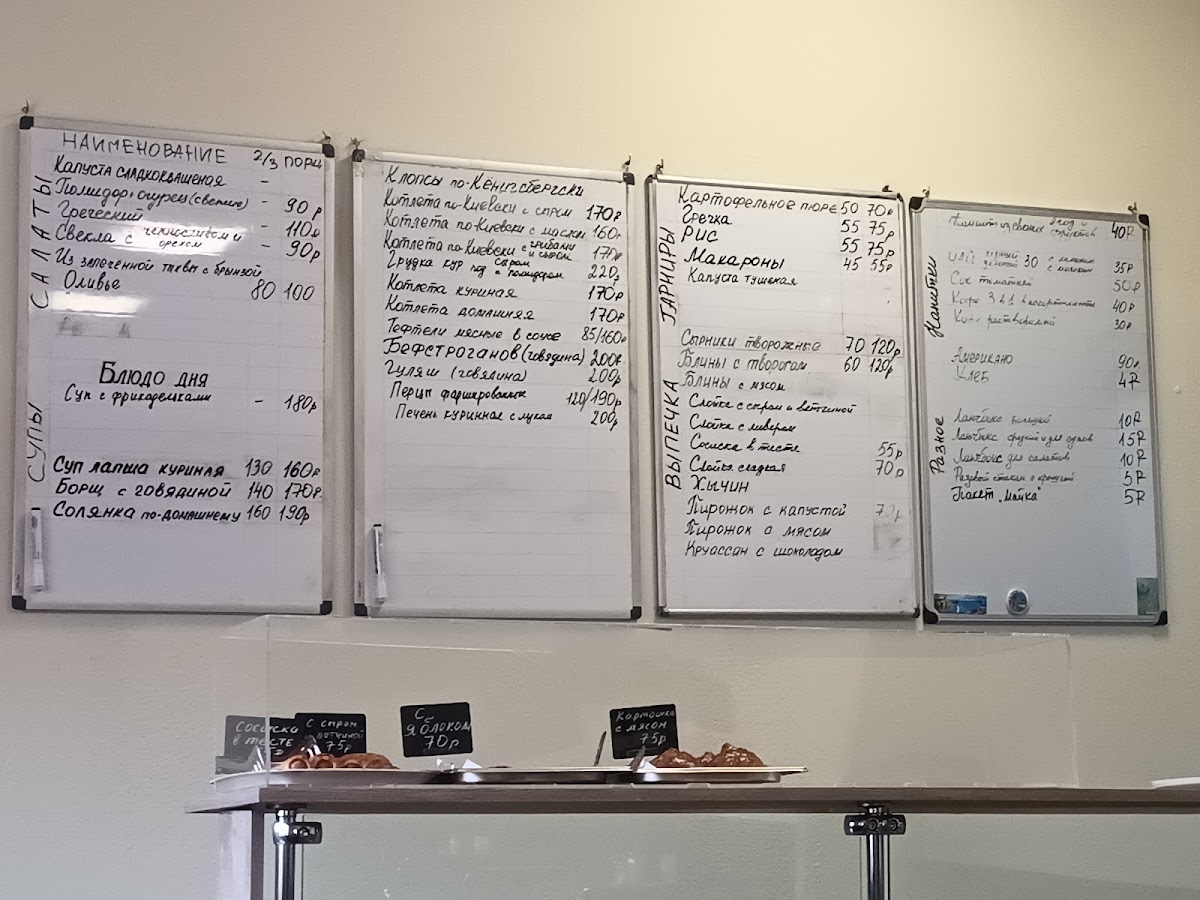 НАИМЕНОВАНИЕ 2/3 ПОРЦ
САЛАТЫ
Капуста сладкоквашеная -
Помидор+огурец(свежие) - 90р
Греческий - 110р
Свекла с черносливом и орехом - 90р
Из запечённой тыквы с брынзой
Оливье 80 100
Блюдо дня
Суп с фрикадельками - 180р
СУПЫ
Суп лапша куриная 130 160р
Борщ с говядиной 140 170р
Солянка по-домашнему 160 190р
Клопсы по-Кёнигсбергски
Котлета по-Киевски с сыром 170р
Котлета по-Киевски с маслом 160р
Котлета по-Киевски с грибами и сыром 170р
Грудка кур под сыром и помидором 220р
Котлета куриная 170р
Котлета домашняя 170р
Тефтели мясные в соусе 85/160р
Бефстроганов (говядина) 200р
Гуляш (говядина) 200р
Перцы фаршированные 120/190р
Печень куриная с луком 200р
ГАРНИРЫ
Картофельное пюре 50 70р
Гречка 55 75р
Рис 55 75р
Макароны 45 55р
Капуста тушеная
ВЫПЕЧКА
Сырники творожные 70 120р
Блины с творогом 60 120р
Блины с мясом
Слойка с сыром и ветчиной
Слойка с ливером
Сосиска в тесте 55р
Слойка сладкая 70р
Хычин
Пирожок с капустой
Пирожок с мясом
Круассан с шоколадом
Напитки
40R
30 с лимоном
с молоком 35R
Сок томатный 50R
Кофе 3в1 в ассортименте 40R
Кофе растворимый 30R
Американо 90R
Хлеб 4R
Разное
Ланчбокс большой 10R
Ланчбокс для супов 15R
Ланчбокс для салатов 10R
Разовый стакан с крышкой 5R
Пакет „Майка" 5R
Сосиска
в тесте
с сыром
ветчиной
75р
с
яблоком
70р
Картошка
с мясом
75р